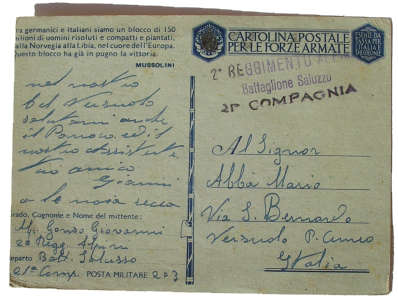 ra germanici e italiani siamo un blocco di 150
milioni di uomini risoluti e compatti e piantati,
dalla Norvegia alla Libia, nel cuore dell'Europa.
Questo blocco ha già in pugno la vittoria.
MUSSOLINI
nel nostro
bel Versuolo
salutami anche
il Parroco ed il
nostro assistente
tuo amico
Gianni
a te
Grado, Cognome e Nome del mittente:
Alp. Gonzo Giovanni
2° Regg. Alpini
Reparto Batt. Saluzzo
21ª Comp. POSTA MILITARE 203
CARTOLINA POSTALE
PER LE FORZE ARMATE
ESENTE DA
TASSA PER
L'ITALIA E
2° REGGIMENTO ALPINI
Battaglione Saluzzo
21ª COMPAGNIA
Al Signor
Abbà Mario
Via S. Bernardo
Versuolo P. Cuneo
Italia